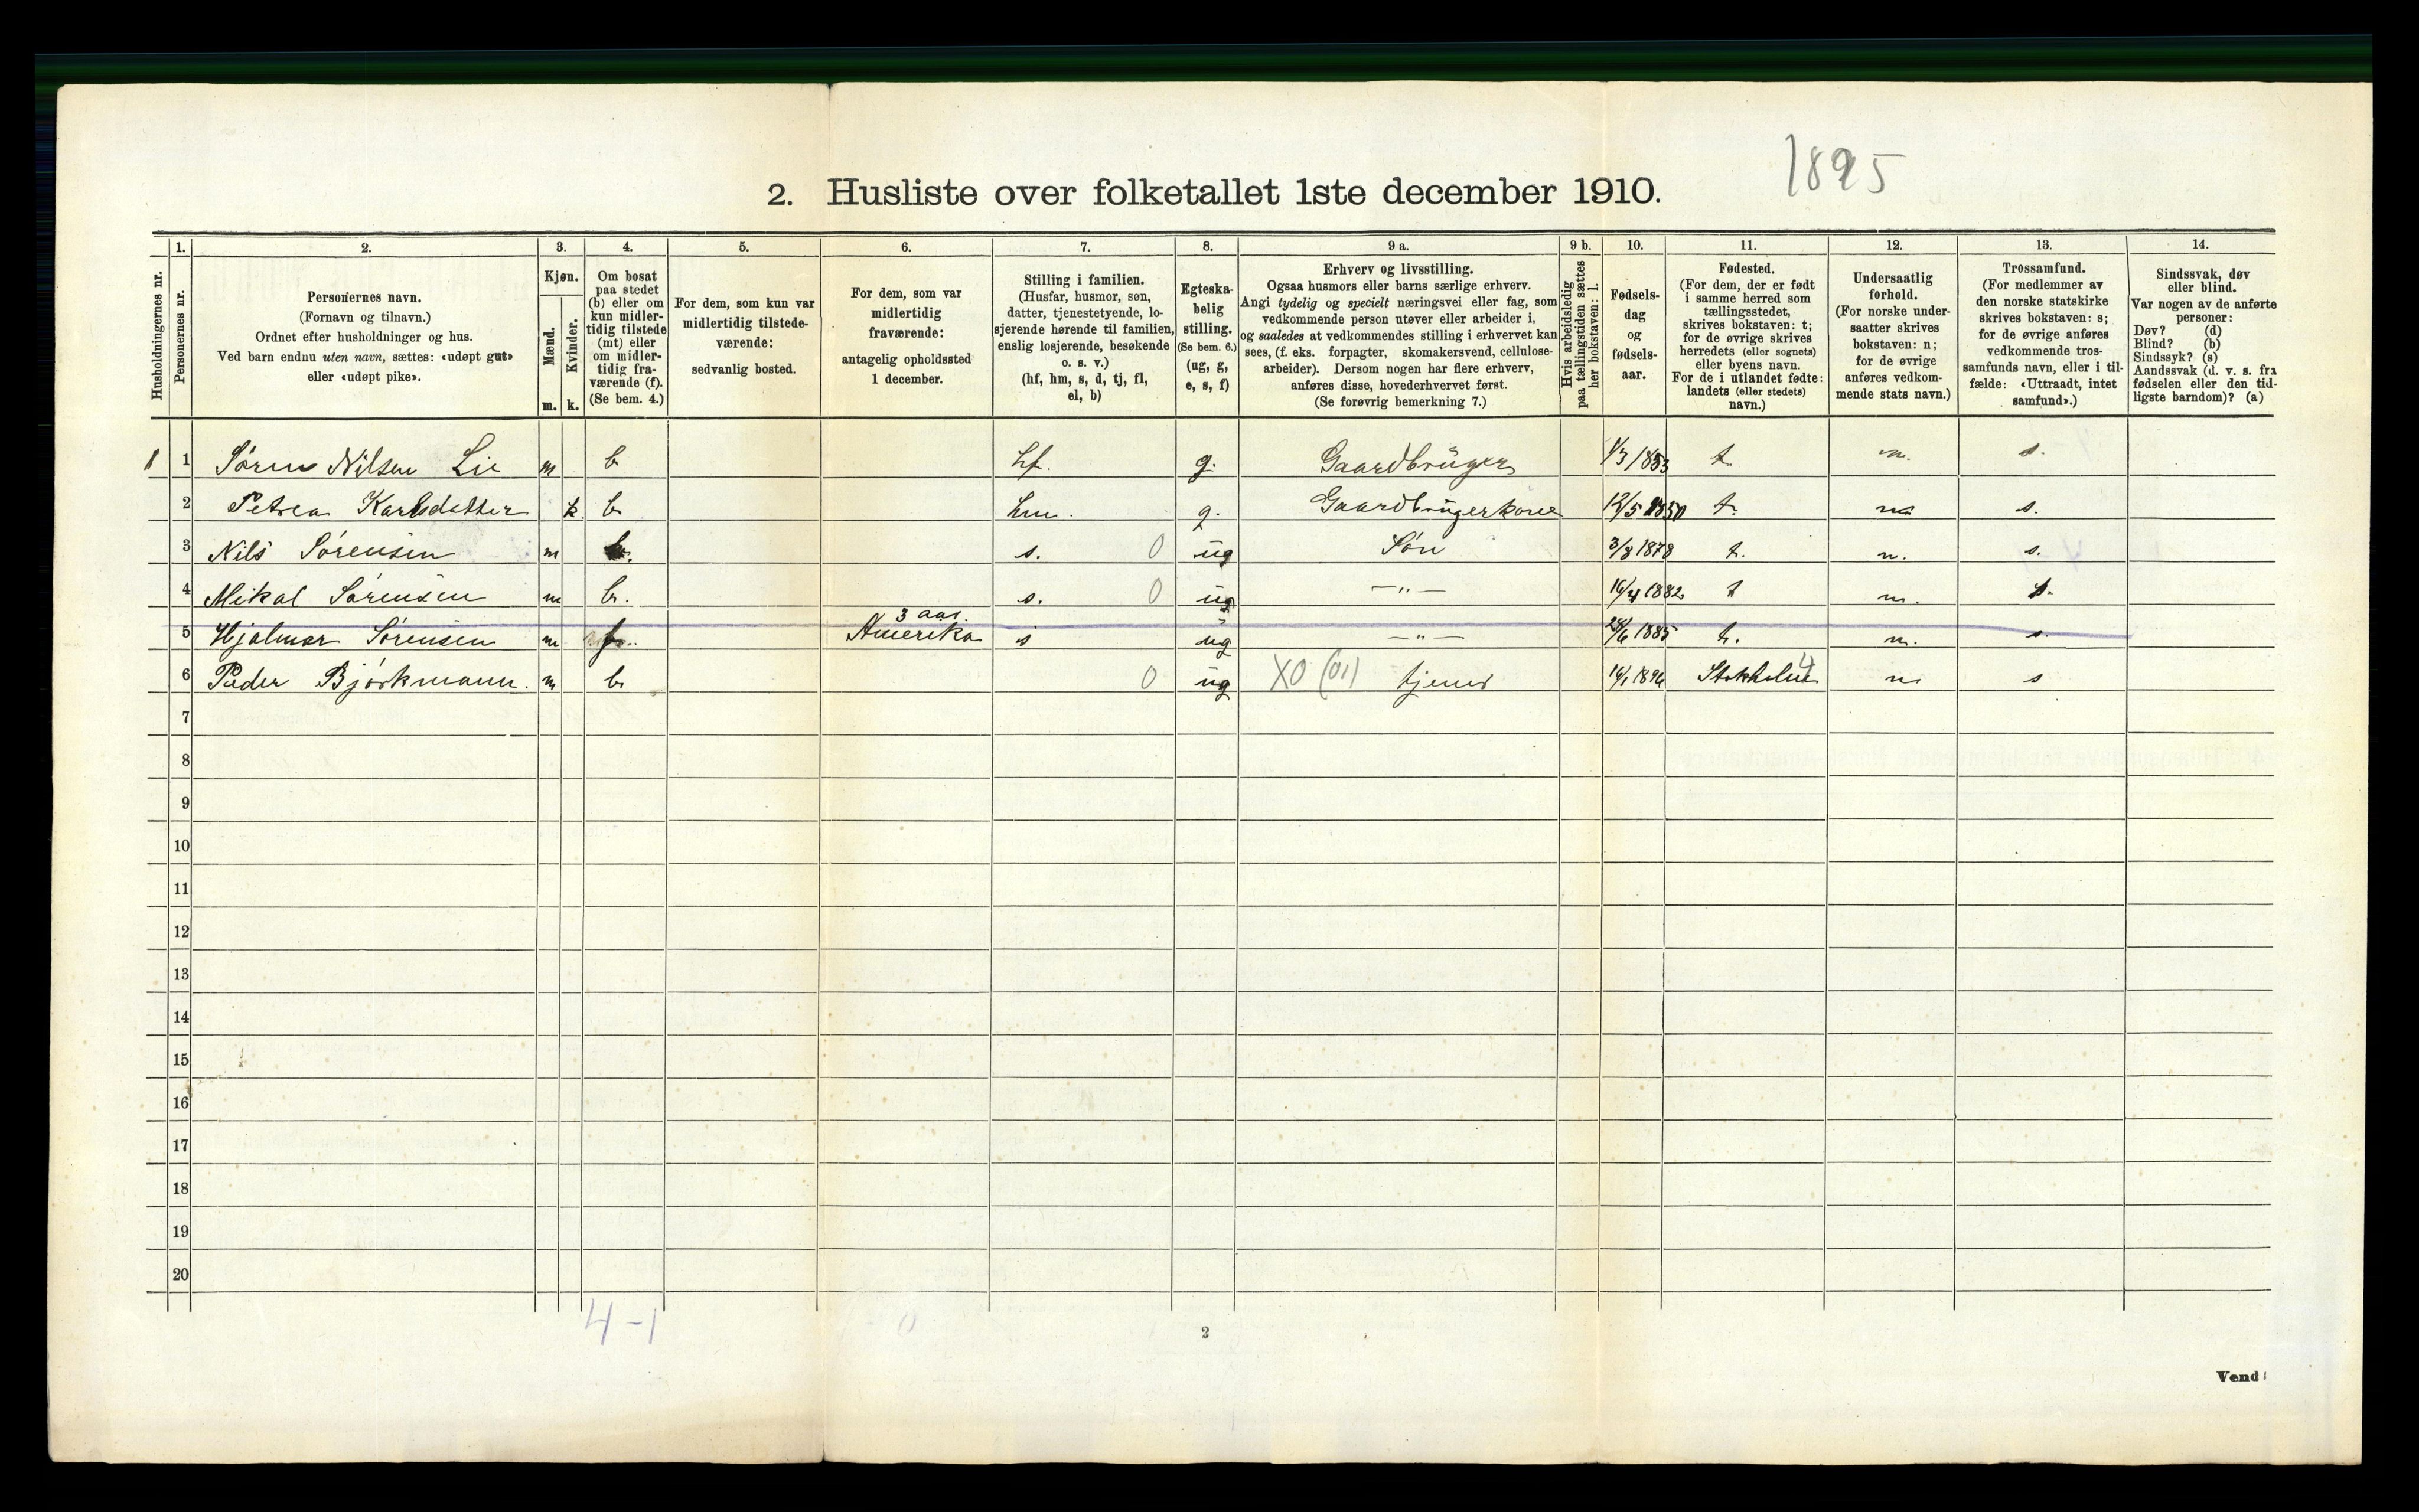 1895
2. Husliste over folketallet 1ste december 1910.
Husholdningernes nr.
1. Personernes nr.
2. Personernes navn.
(Fornavn og tilnavn.)
Ordnet efter husholdninger og hus.
Ved barn endnu uten navn, sættes: «udøpt gut»
eller «udøpt pike».
3. Kjøn.
Mænd. Kvinder.
m. k.
4. Om bosat
paa stedet
(b) eller om
kun midler-
tidig tilstede
(mt) eller
om midler-
tidig fra-
værende (f).
(Se bem. 4.)
5. For dem, som kun var
midlertidig tilstede-
værende:
sedvanlig bosted.
6. For dem, som var
midlertidig
fraværende:
antagelig opholdssted
1 december.
7. Stilling i familien.
(Husfar, husmor, søn,
datter, tjenestetyende, lo-
sjerende hørende til familien,
enslig losjerende, besøkende
o. s. v.)
(hf, hm, s, d, tj, fl,
el, b)
8. Egteska-
belig
stilling.
(Se bem. 6.)
(ug, g,
e, s, f)
9 a. Erhverv og livsstilling.
Ogsaa husmors eller barns særlige erhverv.
Angi tydelig og specielt næringsvei eller fag, som
vedkommende person utøver eller arbeider i,
og saaledes at vedkommendes stilling i erhvervet kan
sees, (f. eks. forpagter, skomakersvend, cellulose-
arbeider). Dersom nogen har flere erhverv,
anføres disse, hovederhvervet først.
(Se forøvrig bemerkning 7.)
9 b. Hvis arbeidsledig
paa tællingstiden sættes
her bokstaven: l.
10. Fødsels-
dag
og
fødsels-
aar.
11. Fødested.
(For dem, der er født
i samme herred som
tællingsstedet,
skrives bokstaven: t;
for de øvrige skrives
herredets (eller sognets)
eller byens navn.
For de i utlandet fødte:
landets (eller stedets)
navn.)
12. Undersaatlig
forhold.
(For norske under-
saatter skrives
bokstaven: n;
for de øvrige
anføres vedkom-
mende stats navn.)
13. Trossamfund.
(For medlemmer av
den norske statskirke
skrives bokstaven: s;
for de øvrige anføres
vedkommende tros-
samfunds navn, eller i til-
fælde: «Uttraadt, intet
samfund».)
14. Sindssvak, døv
eller blind.
Var nogen av de anførte
personer:
Døv? (d)
Blind? (b)
Sindssyk? (s)
Aandssvak (d. v. s. fra
fødselen eller den tid-
ligste barndom)? (a)
1 1 Søren Nilsen Lie m b hf. g. Gaardbrüger 1/3 1853 t. n. s.
2 Petrea Karlsdatter k. b hm. g. Gaardbrügerkone 12/5 1850 t. n s.
3 Nils Sørensen m b. s. 0 üg Søn 3/8 1878 t. n. s.
4 Mikal Sørensen m b. s. 0 üg —„— 16/4 1882 t n. s.
3 aar.
5 Hjalmar Sørensen m f. Amerika s üg —„— 28/6 1885 t. n. s.
6 Peder Bjørkmann. m b 0 üg X0 (01) tjener 14/1 1896 Stokholm 4 n s
7
8
9
10
11
12
13
14
15
16
17
18
19
20
4-1
2
Vend!